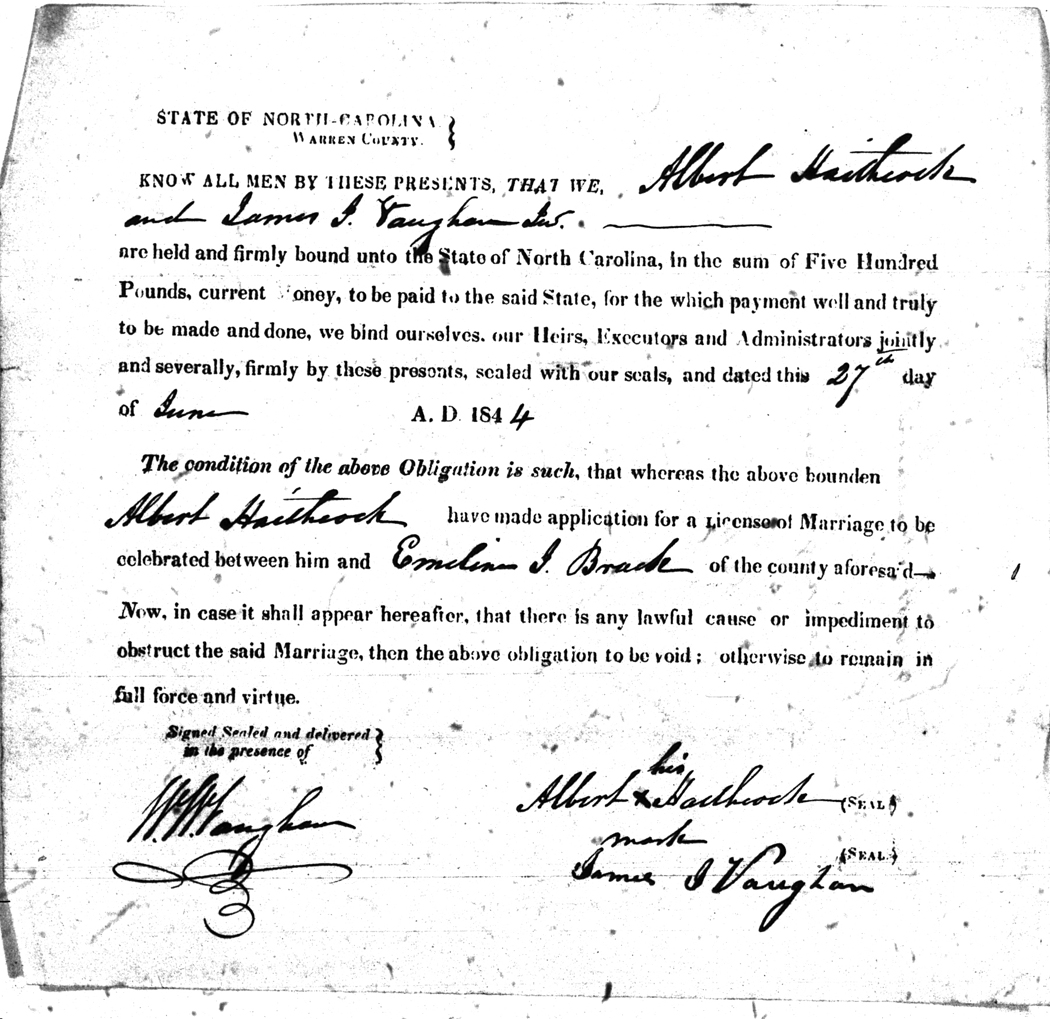 STATE OF NORTH-CAROLINA }
WARREN COUNTY. }
KNOW ALL MEN BY THESE PRESENTS, THAT WE, Albert Haithcock
and James J. Vaughan
are held and firmly bound unto the State of North Carolina, in the sum of Five Hundred
Pounds, current oney, to be paid to the said State, for the which payment well and truly
to be made and done, we bind ourselves. our Heirs, Executors and Administrators jointly
and severally, firmly by these presents, sealed with our seals, and dated this 27th day
of June A. D. 1844
The condition of the above Obligation is such, that whereas the above bounden
Albert Haithcock have made application for a License of Marriage to be
celebrated between him and Emeline J. Brack of the county aforesa'd
Now, in case it shall appear hereafter, that there is any lawful cause or impediment to
obstruct the said Marriage, then the above obligation to be void; otherwise to remain in
full force and virtue.
Signed Sealed and delivered }
in the presence of }
his
Albert x Haithcock (SEAL)
mark
W. W. Vaughan
(SEAL.)
James J Vaughan